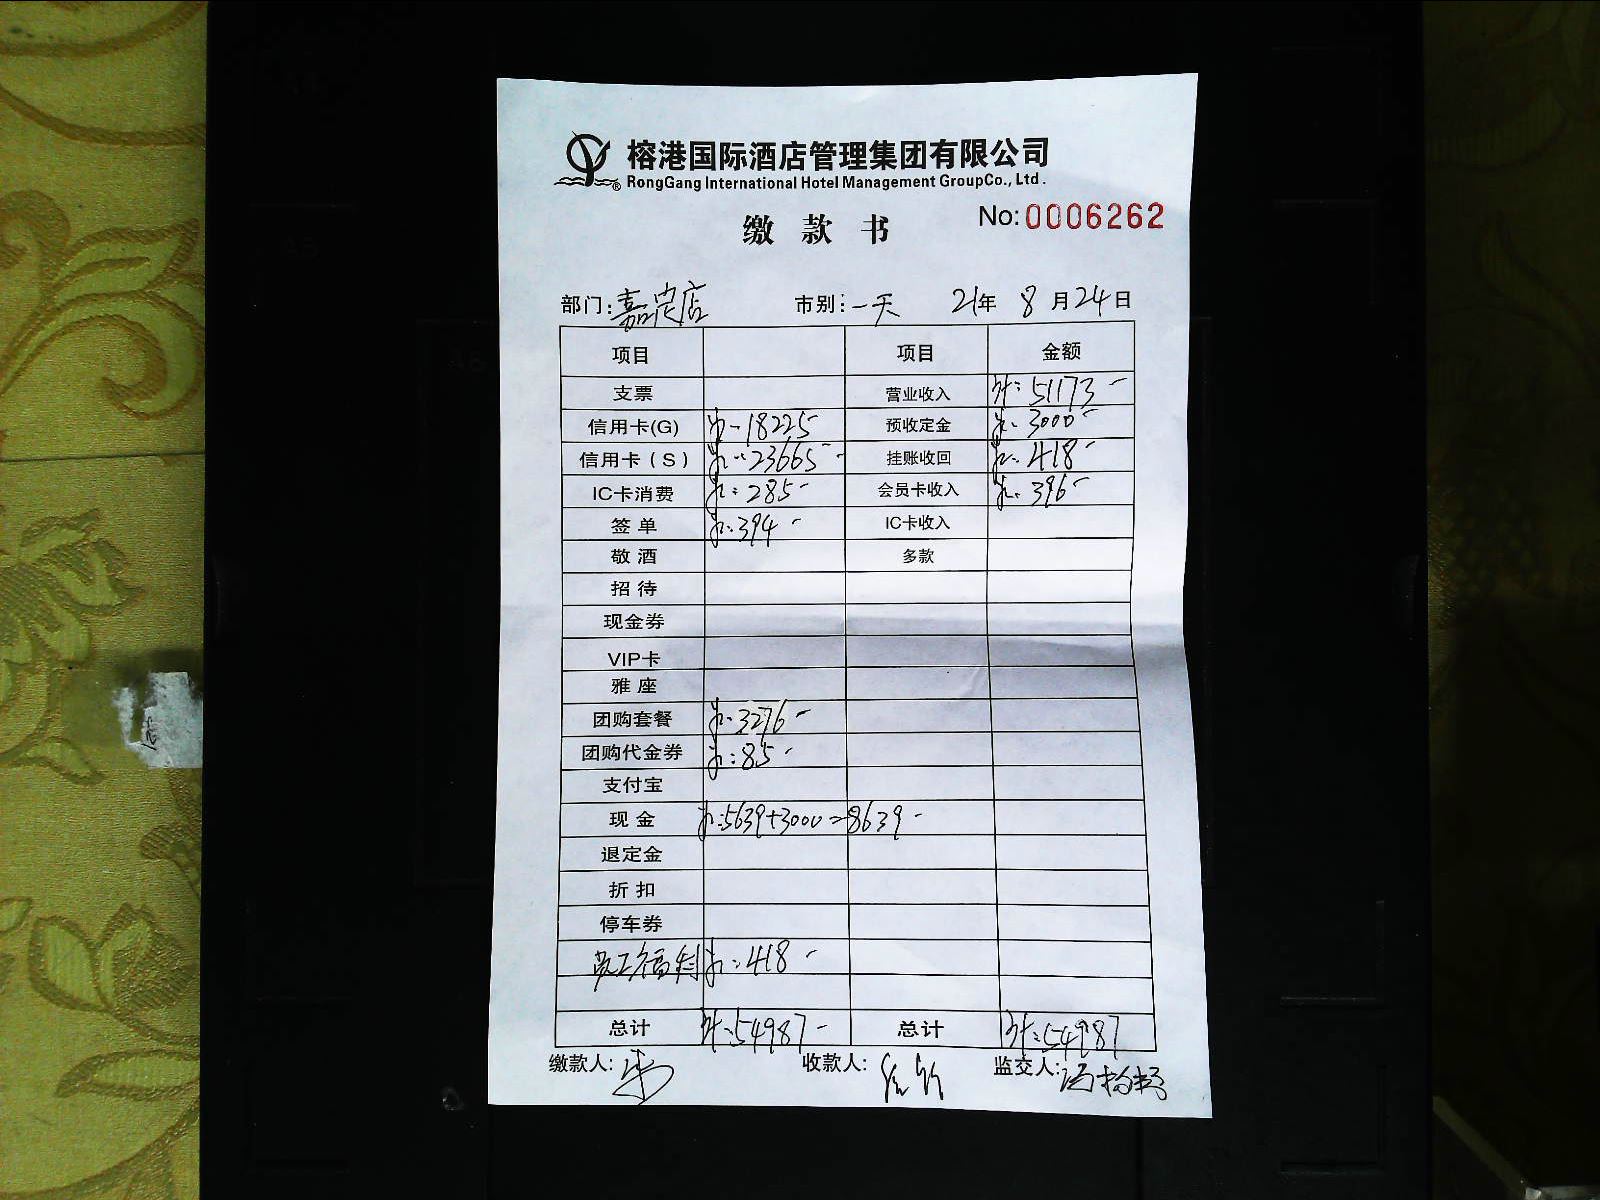 榕港国际酒店管理集团有限公司
RongGang International Hotel Management GroupCo., Ltd.
缴 款 书 No:0006262
部门:嘉定店 市别:一天 21年 8月24日
项目 项目 金额
支票 营业收入 计:51173-
信用卡(G) 18225- 预收定金 3000-
信用卡(S) 23665- 挂账收回 418-
IC卡消费 285- 会员卡收入 396-
签单 394- IC卡收入
敬酒 多款
招待
现金券
VIP卡
雅座
团购套餐 3276-
团购代金券 85-
支付宝
现金 5639+3000=8639-
退定金
折扣
停车券
员工福利 418-
总计 计:54987- 总计 计:54987
缴款人: 收款人: 监交人: